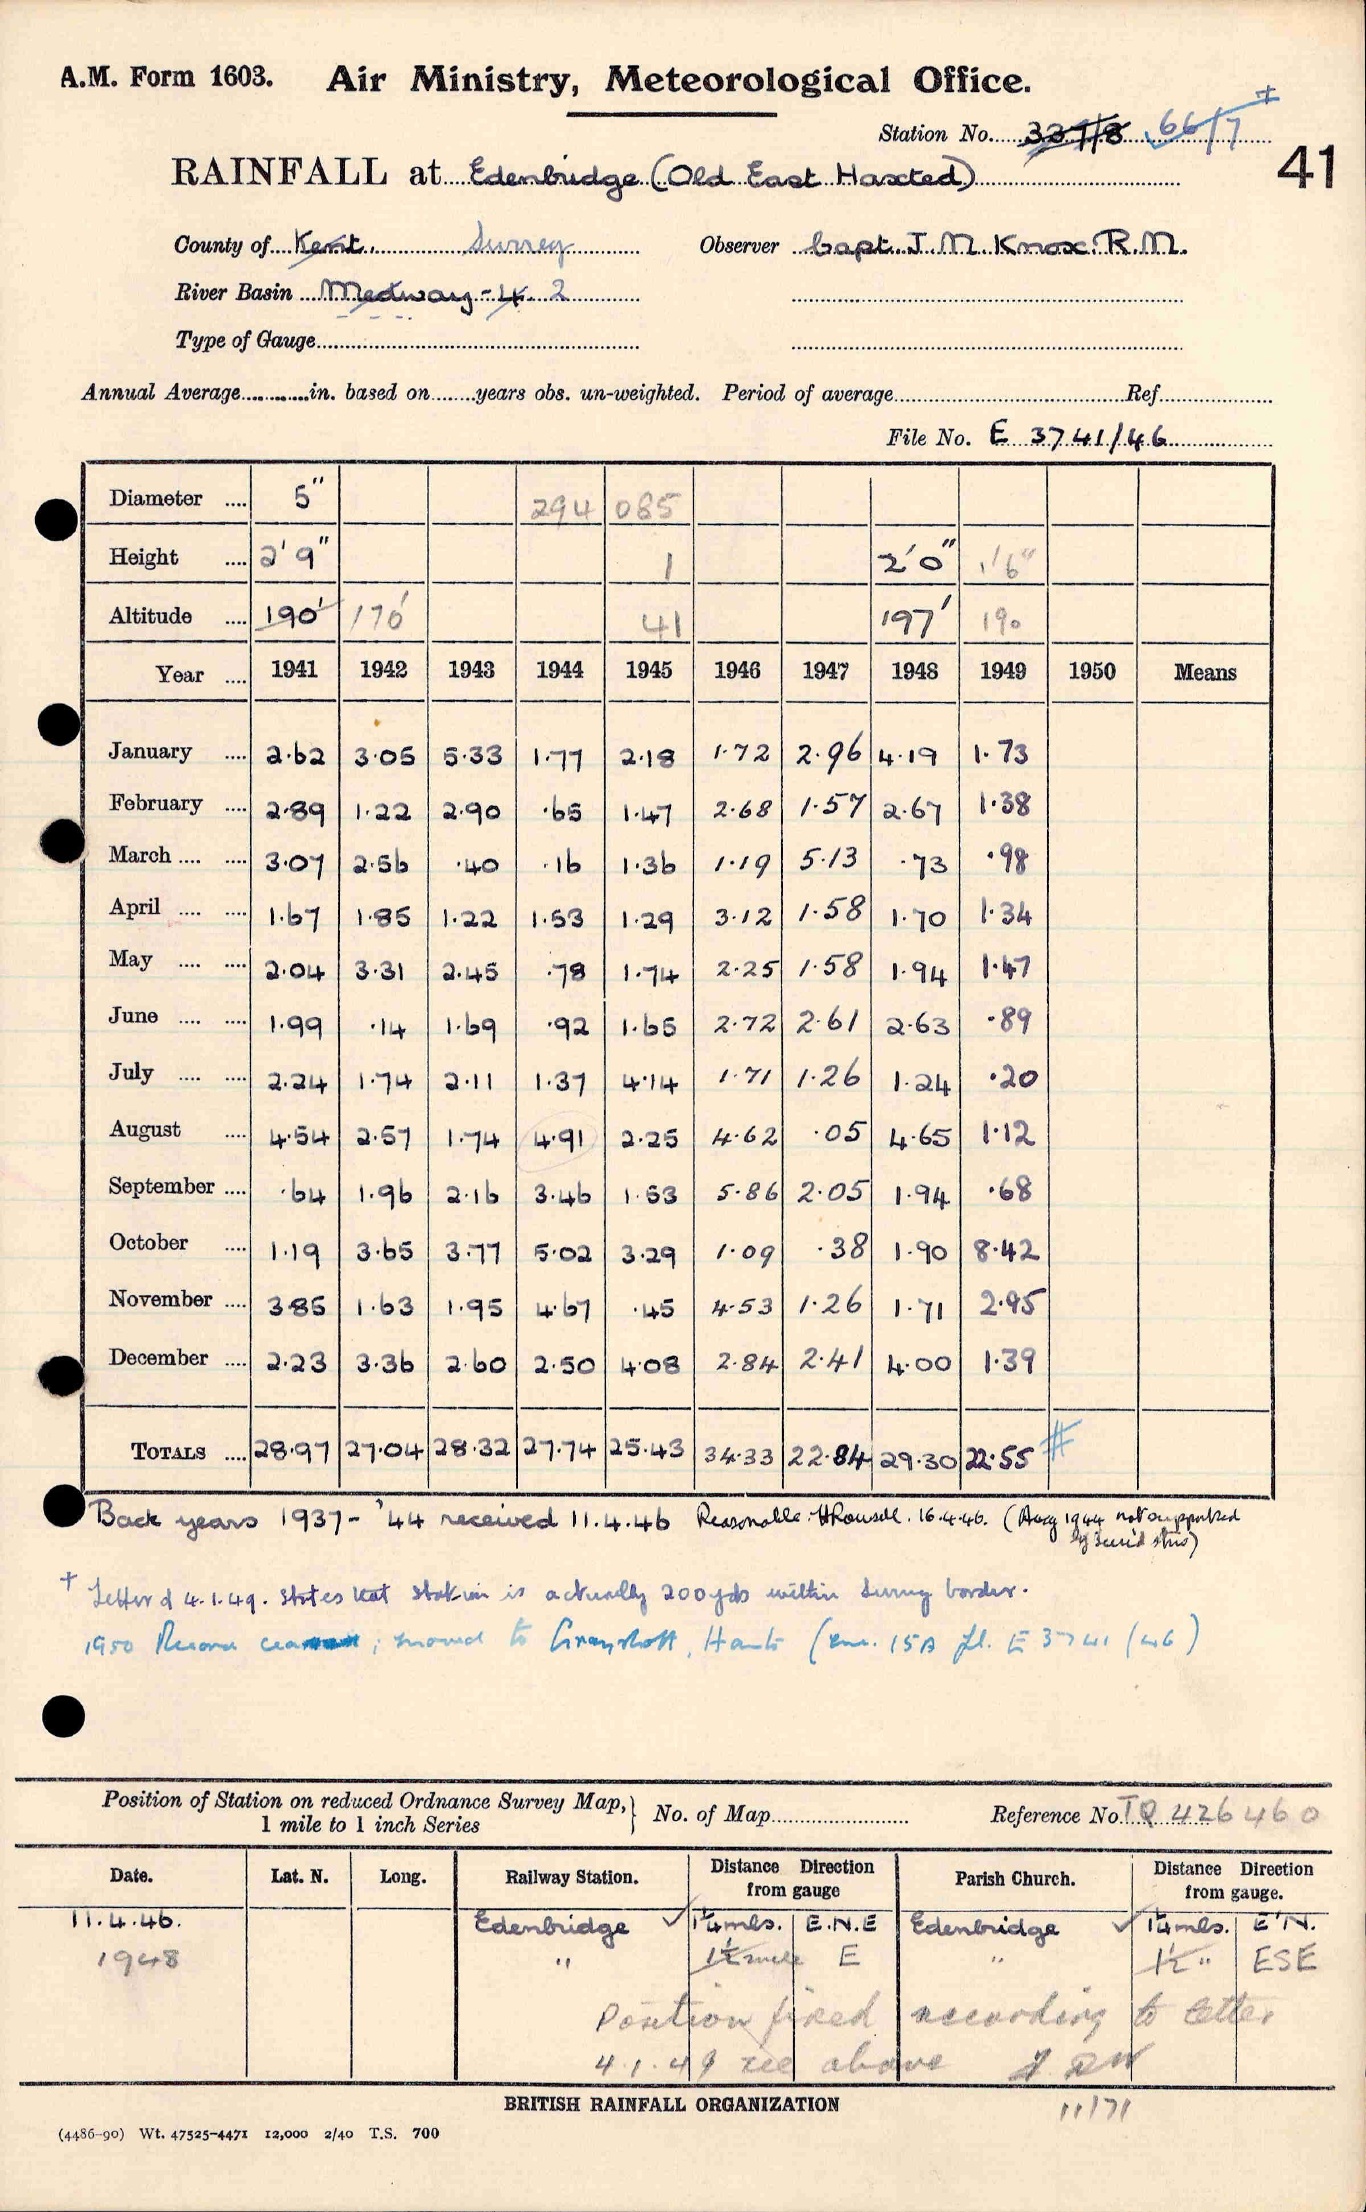 A.M. Form 1603. Air Ministry, Meteorological Office.
Station No. 337/8 66/7 ‡
41
RAINFALL at Edenbridge (Old East Haxted)
County of Kent. Surrey Observer Capt. J. M. Knox. R.M.
River Basin Medway - 4. 2
Type of Gauge
Annual Average in. based on years obs. un-weighted. Period of average Ref
File No. E 3741/46
Diameter 5" 294 085
Height 2' 9" 1 2' 0" 1' 6"
Altitude 190' 170' 41 197' 190
Year 1941 1942 1943 1944 1945 1946 1947 1948 1949 1950 Means
January 2.62 3.05 5.33 1.77 2.18 1.72 2.96 4.19 1.73
February 2.89 1.22 2.90 .65 1.47 2.68 1.57 2.67 1.38
March 3.07 2.56 .40 .16 1.36 1.19 5.13 .73 .98
April 1.67 1.85 1.22 1.53 1.29 3.12 1.58 1.70 1.34
May 2.04 3.31 2.45 .78 1.74 2.25 1.58 1.94 1.47
June 1.99 .14 1.69 .92 1.65 2.72 2.61 2.63 .89
July 2.24 1.74 2.11 1.37 4.14 1.71 1.26 1.24 .20
August 4.54 2.57 1.74 4.91 2.25 4.62 .05 4.65 1.12
September .64 1.96 2.16 3.46 1.53 5.86 2.05 1.94 .68
October 1.19 3.65 3.77 5.02 3.29 1.09 .38 1.90 8.42
November 3.85 1.63 1.95 4.67 .45 4.53 1.26 1.71 2.95
December 2.23 3.36 2.60 2.50 4.08 2.84 2.41 4.00 1.39
TOTALS 28.97 27.04 28.32 27.74 25.43 34.33 22.84 29.30 22.55 #
Back years 1937-'44 received 11.4.46 Reasonable. 16.4.46. (Aug 1944 not supported
by stns)
† Letter d 4.1.49. states that station is actually 200 yds within Surrey border.
1950 Record ; moved to Grayshott, Hants ( 15A fl. E 3741/46)
Position of Station on reduced Ordnance Survey Map,} No. of Map Reference No TQ 426460
1 mile to 1 inch Series
Date. Lat. N. Long. Railway Station. Distance Direction from gauge Parish Church. Distance Direction from gauge.
11.4.46. Edenbridge ✓ 1¼ mls. E.N.E Edenbridge ✓ 1¼ mls. E'N.
1948 " 1½ mile E " 1½ " ESE
Position fixed according to letter
4.1.49 see above
11/71
BRITISH RAINFALL ORGANIZATION
(4486-90) Wt. 47525-4471 12,000 2/40 T.S. 700